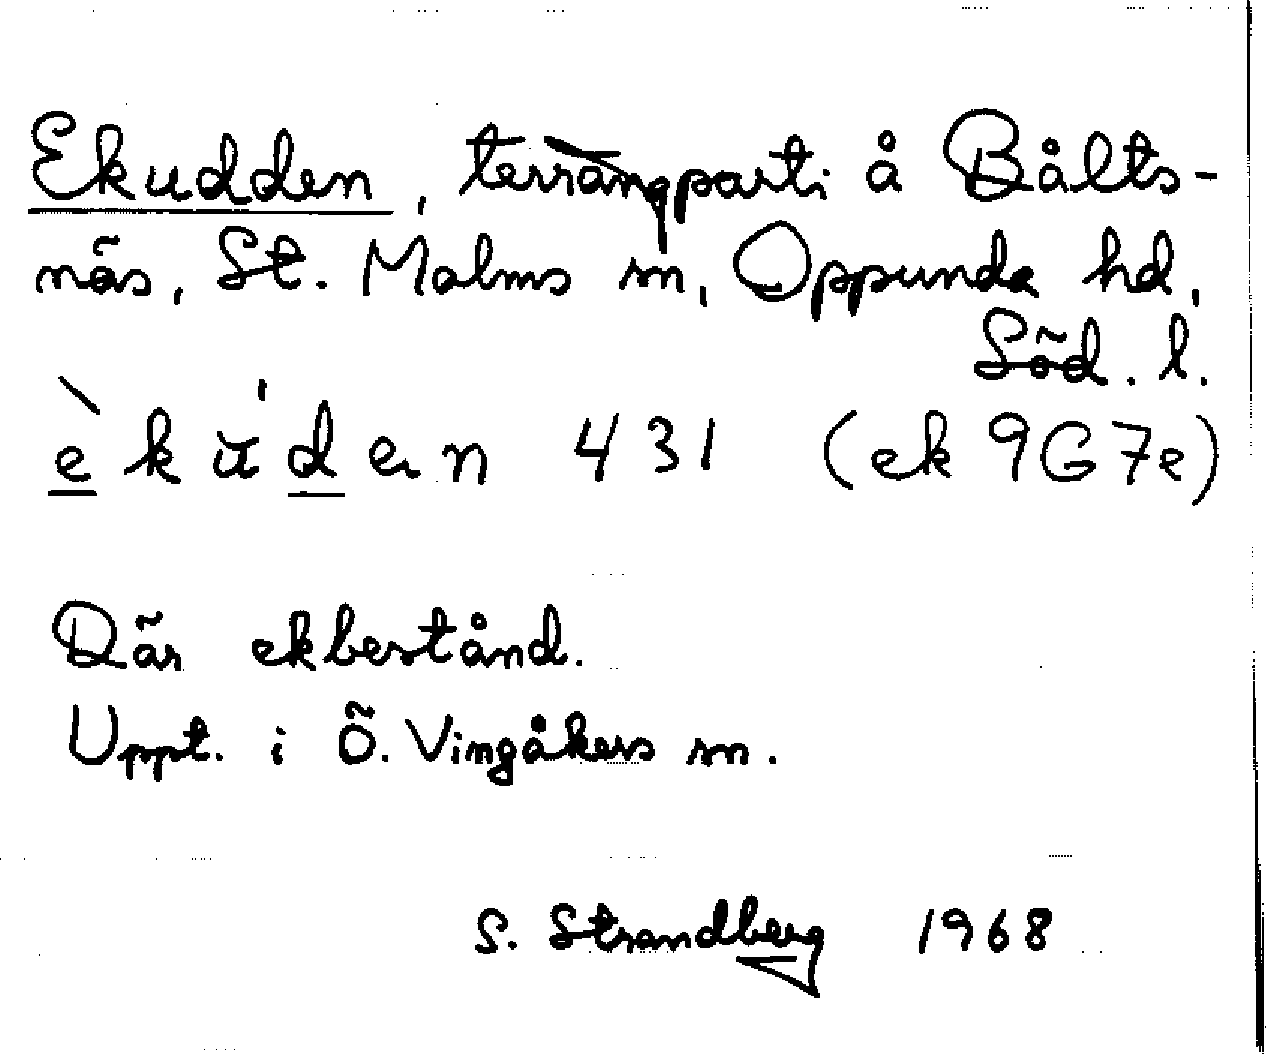 Ekudden, terrängparti å Bålts-
näs, St. Malms sn, Oppunda hd,
Söd. l.
èkŭ́den 431 (ek 9G7e)
Där ekbestånd.
Uppt. i Ö. Vingåkers sn.
S. Strandberg 1968